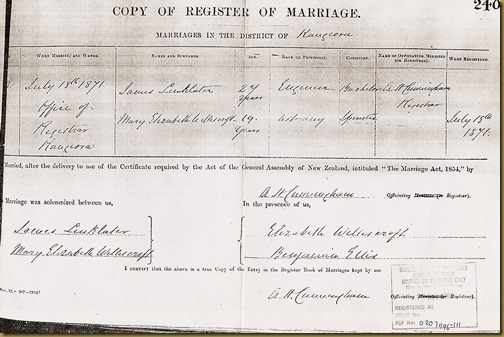 240
COPY OF REGISTER OF MARRIAGE.
MARRIAGES IN THE DISTRICT OF Rangiora
WHEN MARRIED, AND WHERE. NAMES AND SURNAMES. AGE. RANK OR PROFESSION. CONDITION. NAME OF OFFICIATING MINISTER (OR REGISTRAR). WHEN REGISTERED.
July 18th 1871 James Linklater 24 years Engineer Bachelor A H Cunningham Registrar
Office of Registrar Rangiora Mary Elizabeth Wethescroft 19 years not any Spinster July 18th 1871.
Married, after the delivery to me of the Certificate required by the Act of the General Assembly of New Zealand, intituled "The Marriage Act, 1854," by
A. H. Cunningham Officiating Minister (or Registrar).
Marriage was solemnized between us, In the presence of us,
James Linklater Elizabeth Wethescroft
Mary Elizabeth Wethescroft Benjamin Ellis
I CERTIFY that the above is a true Copy of the Entry in the Register Book of Marriages kept by me
A. H. Cunningham Officiating Minister (or Registrar).
REGISTERED AT
FOLIO No.
REF No.